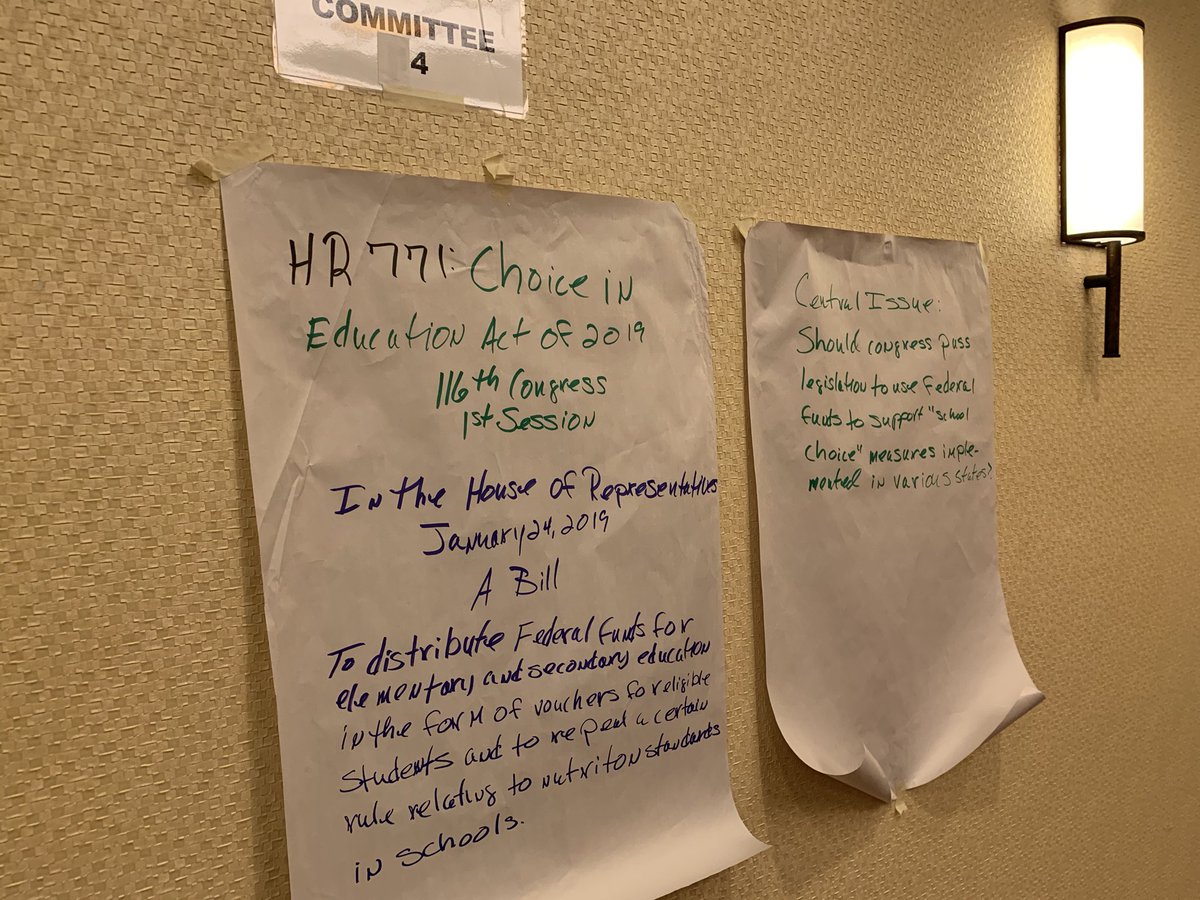 COMMITTEE
4
HR 771: Choice in
Education Act of 2019
116th Congress
1st Session
In the House of Representatives
January 24, 2019
A Bill
To distribute Federal funts for
elementary and secondary education
in the form of vouchers for religible
students and to repeal a certain
rule relating to nutriton standards
in schools.
Central Issue:
Should congress pass
legislation to use Federal
funts to support "school
choice" measures imple-
mented in various states?